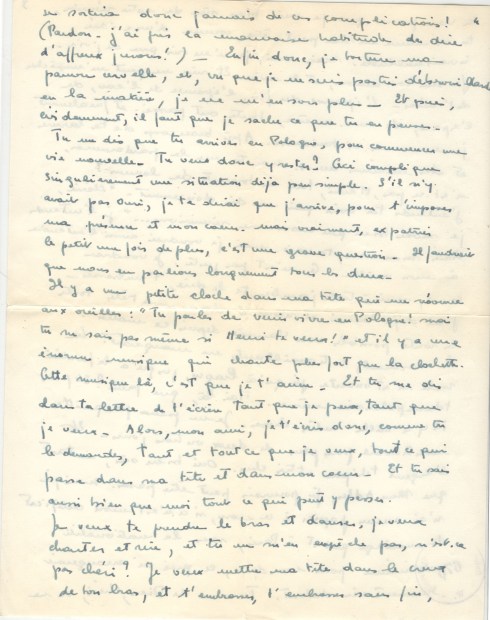 4
sortira donc jamais de ces complications!
(Pardon - j'ai pris la mauvaise habitude de dire
d'affreux jurons!) - Enfin donc, je torture ma
pauvre cervelle, et, vu que je ne suis pas très débrouillarde
en la matière, je ne m'en sors plus - Et puis,
évidemment, il faut que je sache ce que tu en penses -
Tu me dis que tu arrives en Pologne, pour commencer une
vie nouvelle - Tu veux donc y rester? Ceci complique
singulièrement une situation déjà peu simple. S'il n'y
avait pas je te dirai que j'arrive, pour t'imposer
ma présence et mon coeur. mais vraiment, expatrier
le petit une fois de plus, c'est une grave question - Il faudrait
que nous en parlions longuement tous les deux -
Il y a une petite cloche dans ma tête qui me résonne
aux oreilles: "Tu parles de venir vivre en Pologne! mais
tu ne sais pas même si Henri te veux!" et il y a une
énorme musique qui chante plus fort que la clochette.
Cette musique là, c'est que je t'aime - Et tu me dis
dans ta lettre de t'écrire tant que je peux, tant que
je veux - Alors, mon ami, je t'écris donc, comme tu
le demandes, tant et tout ce que je veux, tout ce qui
passe dans ma tête et dans mon coeur - Et tu sais
aussi bien que moi tout ce qui peut y passer.
Je veux te prendre le bras et danser, je veux
chanter et rire, et tu ne m'en empêche pas, n'est-ce
pas chéri? Je veux mettre ma tête dans le creux
de ton bras, et t'embrasser, t'embrasser sans fin,